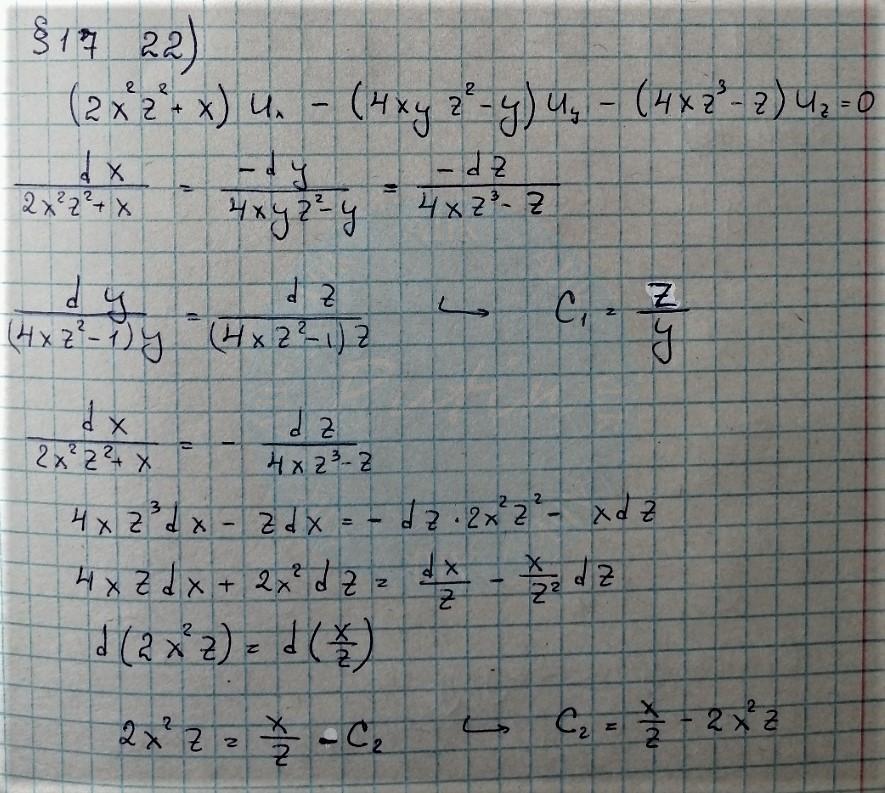 §17 22)
(2x²z² + x) uₓ - (4xyz² - y) u_y - (4xz³ - z) u_z = 0
dx/(2x²z² + x) = -dy/(4xyz² - y) = -dz/(4xz³ - z)
dy/((4xz² - 1)y) = dz/((4xz² - 1)z) ↪ C₁ = z/y
dx/(2x²z² + x) = - dz/(4xz³ - z)
4xz³dx - zdx = - dz · 2x²z² - xdz
4xzdx + 2x²dz = dx/z - x/z² dz
d(2x²z) = d(x/z)
2x²z = x/z - C₂ ↪ C₂ = x/z - 2x²z